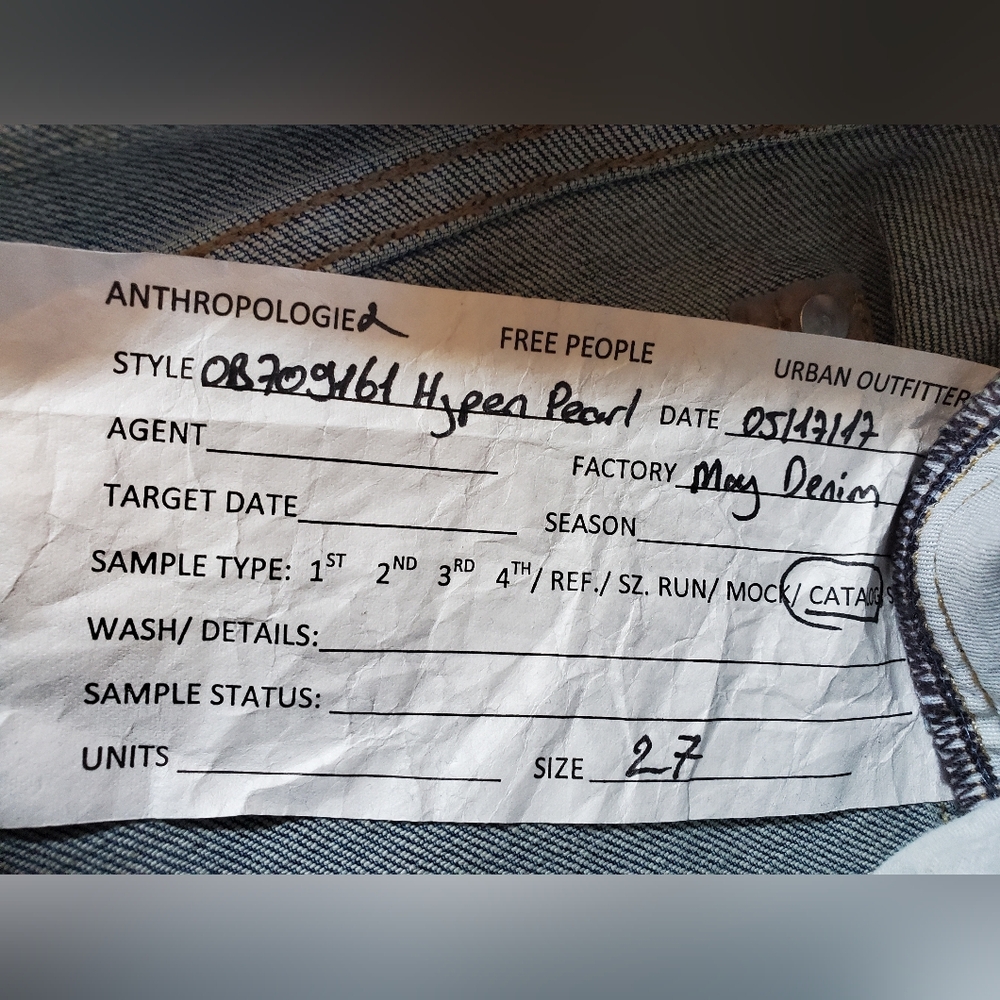 ANTHROPOLOGIE FREE PEOPLE URBAN OUTFITTER
STYLE OB709161 Hypen Pearl DATE 05/17/17
AGENT FACTORY May Denim
TARGET DATE SEASON
SAMPLE TYPE: 1ST 2ND 3RD 4TH/ REF./ SZ. RUN/ MOCK/ CATALOG
WASH/ DETAILS:
SAMPLE STATUS:
UNITS SIZE 27